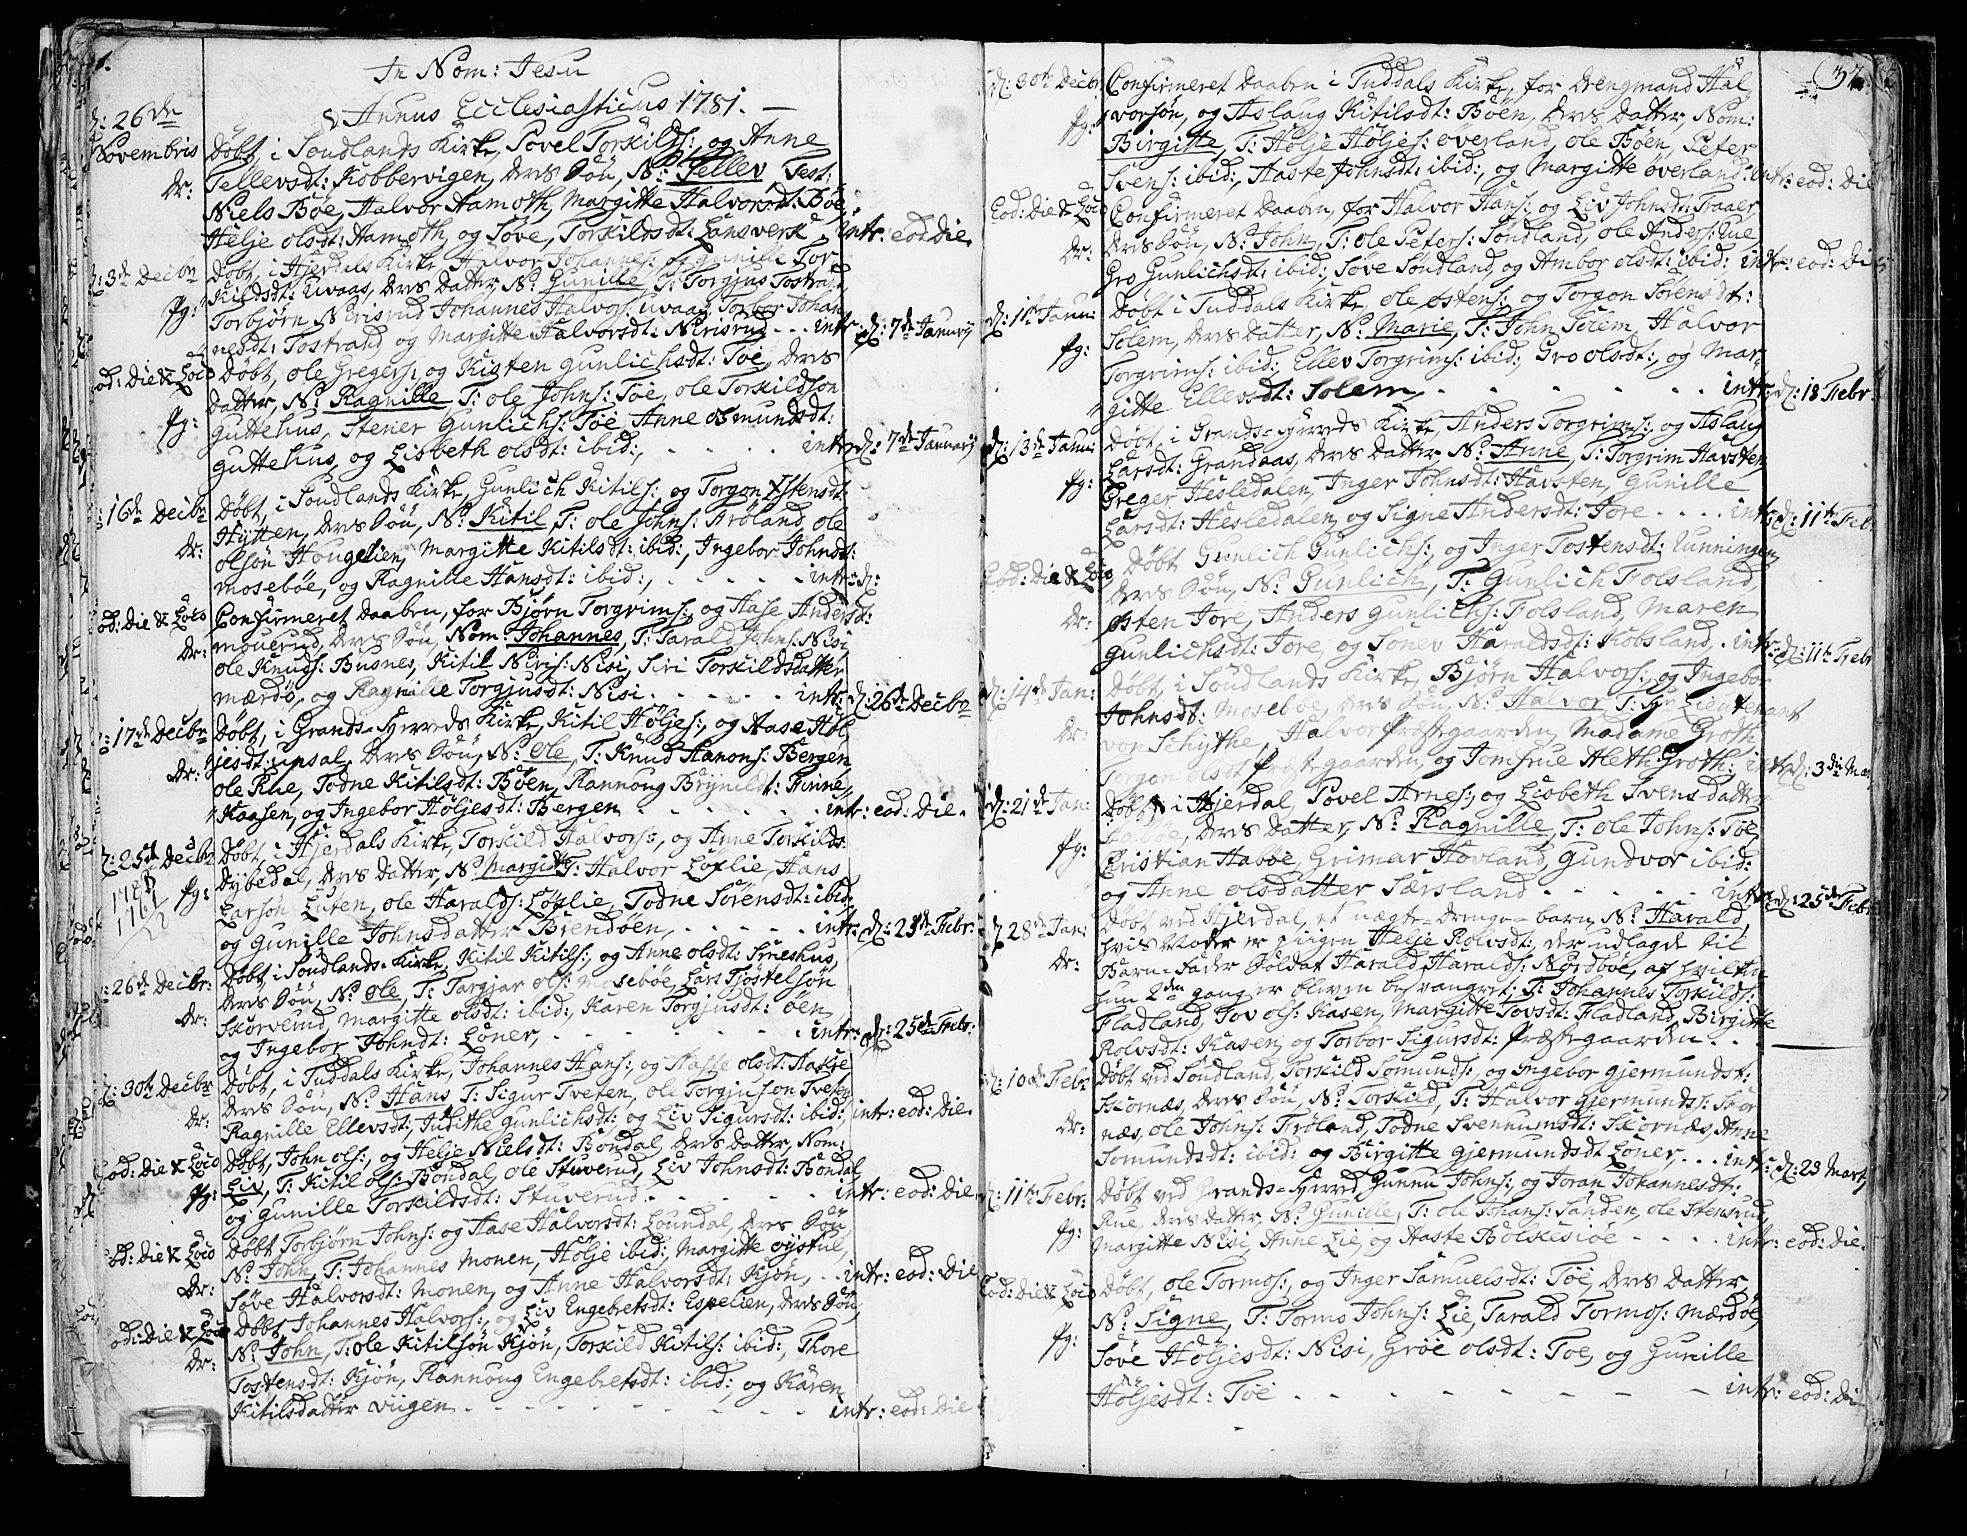 In Nom: Jesu
Annus Ecclesiasticus 1781. —
d: 26de Novembris
Døbt, i Soudlands Kirke, Povel Torkilds: og Anne
Tellevsdt: Kobbervigen, deres Søn, N: Tellev Test:
dr:
Niels Bøe, Halvor Hamoth, Margitte Halvorsdt: Bøe,
Helje olsdt: Hamoth, og Søve, Torkildsdt: Lansverk intr: eod: Die.
d: 3de Decbr
Døbt, i Hjerdals Kirke, Halvor Johannes: og Gunille Tor
Kildsdt: Uvaas, deres datter, N: Gunille, T: Torgjus Tostrand
pg:
Torbjørn Nerisrud, Johannes Halvors: Uvaas, Torbor Johan
nesdt: Tostrand, og Margitte Halvorsdt: Nerisrud - - intr: d: 7de Januarij
eod: Die & Loco
Døbt, ole Gregers: og Kisten Gunlichsdt: Toe, deres
datter, N: Ragnille T: ole Johns: Toe, ole Torkildsøn
pg:
Guttehus, Stener Gunlichs: Toe Anne osmundsdt:
Guttehus, og Lisbeth olsdt: ibid:, - - - - intr: d: 7de Januarij
d: 16de Decbr
Døbt, i Soudlands Kirke, Gunlich Kitils: og Torgon Ostensdt:
Hytten, deres Søn, N: Kitil, T: ole Johns: Frøland, ole
dr:
olsøn Hougelien, Margitte Kitilsdt: ibid:, Ingebor Johnsdt:
mosebøe, og Ragnille Hansdt: ibid:, - - - - intr: d:
eod: Die & Loco
Confirmeret Daaben, for Bjørn Torgrims: og Aase Andersdt:
mouerud, deres Søn, Nom: Johannes, T: Tarald Johns: Nisi,
dr:
ole Knuds: Busnes, Kitil Neris: Nisi, Siri Torkildsdatter
mærdø, og Ragnille Torgjusdt: Nisi - - - - intr: d: 26de Decbr
d: 17de Decbr
Døbt, i Grands-Herreds Kirke, Kitil Høljes: og Aase Høl
jesdt: upsal, deres Søn, N: ole, T: Knud Hanons: Bergen
dr:
ole Rue, Todne Kitilsdt: Bøen, Rannoug Brynildt: Finne,
Kaasen, og Ingebor Høljesdt: Bergen - - - - intr: eod: Die.
d: 25de Decbr
Døbt, i Hjerdals Kirke, Torkild Halvors:, og Anne Torkilds
dybedal, deres datter, N: Margitte T: Halvor Løflie, Hans
pg:
Larsøn Luten, ole Haralds: Løflie, Todne Sørensdt: ibid:
og Gunille Johnsdatter Brendøen, - - - - intr: d: 25de Febr.
d: 26de Decbr:
Døbt, i Soudlands Kirke, Kitil Kitils:, og Anne olsdt: Smeshus,
deres Søn, N: ole, T: Targjar ols: Mosebøe, Lars Tjostelsøn
dr:
Skorverud, Margitte olsdt: ibid:, Karen Torgjusdt: øen
og Ingebor Johndt: Løner, - - - - intr: d: 25de Febr:
d: 30te Decbr
Døbt, i Tuddals Kirke, Johannes Hans: og Haste olsdt: Haskie
deres Søn, N: Hans T: Sigur Tveten, ole Torgiusøn Tveten
dr:
Ragnille Ellevsdt:, Judithe Gunlichsdt: og Liv Sigursdt: ibid:, intr: eod: Die.
eod: Die & Loco
Døbt, John ols:, og Helje Nielsdt: Bondal, deres datter, Nom:
Liv, T: Kitil ols: Bondal, ole Stuverud, Liv Johnsdt: Bondal,
pg:
og Gunille Torkildsdt: Stuverud. - - - - intr: eod: Die
eod: Die & Loco
Døbt Torbjørn Johns: og Aase Halvorsdt: Loundal, deres Søn
N: John T: Johannes Monen, Hølje ibid:, Margitte øystul,
dr:
Søve Halvorsdt: Monen, og Anne Halvorsdt: Kjøn, - intr: eod: Die
eod: Die & Loco
Døbt, Johannes Halvors:, og Liv Engebretsdt: Espelien, deres Søn,
N: John, T: ole Kitilsøn Kjøn, Torkild Kitils: ibid:, Thore
dr:
Tostensdt: Kjøn, Rannoug Engebretsdt: ibid:, og Karen
Kitilsdatter Viigen - - - - intr: eod: Die
37.
d: 30te Decbr
Confirmeret Daaben i Tuddals Kirke, for Drengmand Hal
vorsøn, og Aslaug Kitilsdt: Bøen, deres datter, Nom:
pg:
Birgitte, T: Hølje Høljes: overland, ole Bøen, Peter
Svens: ibid:, Haste Johnsdt: ibid:, og Margitte øverland: intr: eod: Die
Eod: Die & Loco
Confirmeret Daaben, for Halvor Hans: og Liv Johnsdt: Traaer
deres Søn, N: John, T: ole Peters: Søndland, ole Anders: Lue
dr:
Gro Gunlichsdt: ibid:, Søve Søndland, og Ambor olsdt: ibid: intr: eod: Die
d: 11te Janu:
Døbt i Tuddals Kirke, ole østens: og Torgon Sørensdt:
Solem, deres datter, N: Marie, T: John Solem, Halvor
pg:
Torgrims: ibid:, Ellev Torgrims: ibid:, Gro olsdt:, og Mar-
gitte Ellevsdt: Solem, - - - - intr: d: 18 Febr
d: 13de Janu:
Døbt, i Grands-Herreds Kirke, Anders Torgrims: og Aslaug
Larsdt: Grandaas, deres datter N: Anne, T: Torgrim Havsten
pg:
Greger Hesledalen, Inger Johnsdt: Havsten, Gunille
Larsdt: Hesledalen, og Signe Andersdt: Fore - - - intr: d: 11te Feb
Eod: Die & Loco
Døbt Gunlich Gunlichs:, og Inger Tostensdt: Kunningen,
deres Søn, N: Gunlich, T: Gunlich Folsland,
dr:
østen Fore, Anders Gunlichs: Folsland, Maren
Gunlichsdt: Fore, og Tonev Haraldsdt: Kobsland, - intr: d: 11te Febr
d: 14de Jan:
Døbt, i Soudlands Kirke, Bjørn Halvors: og Ingebor
Johnsdt: Mosebøe, deres Søn, N: Halvor T: Hr Lieutenant
dr:
von Schythe, Halvor Præstgaarden, Madame Groth,
Torgon olsdt Præstgaarden, og Jomfrue Aleth Groth: intr: d: 3die Mar
d: 21de Jan:
Døbt, i Hjerdal, Povel Arnes: og Lisbeth Svensdatter
deres datter, N: Ragnille, T: ole Johns: Toe,
pg:
Cristian Habøe, Grimar Hovland, Gundvor ibid:
og Anne olsdatter Særsland - - - - intr: d: 25de Feb
d: 28de Jan:
Døbt ved Hjerdal, et uægte-drenge-barn, N: Harald,
hvis Moder er Piigen Helje Rolvsdt:, der udlagde til
dr:
Barn-Fader Soldat Harald Haralds: Nordbøe, af hvilken
hun 2den gang er bleven besvangret; T: Johannes Torkilds:
Fladland, Tov ols: Kasen, Margitte Tovsdt: Fladland, Birgitte
Rolvsdt: Kasen, og Torbor Sigursdt: Præstegaarden - -
d: 10de Feb:
Døbt ved Søndland, Torkild Somunds:, og Ingebor Gjermundst:
Skornæs, deres Søn, N: Torkild, T: Halvor Gjermunds: Skor
dr:
næs, ole Johns: Frøland, Todne Svennumsdt: Skornæs, Anne
Somundsdt: ibid: og Birgitte Gjermundsdt Løner, - - intr: d: 23 Martj
d: 11te Febr:
Døbt ved Grands-Herred, Gunnu Johns:, og Joran Johannesdt:
Rue, deres datter, N: Gunille, T: ole Johans: Sanden, ole Stensrud,
pg:
Margitte Nisi, Anne Lie, og Haste Bolkesiøe - - - - intr: eod: Die.
Eod: Die & Loco
Døbt, ole Tormos:, og Inger Samuelsdt: Toe, deres datter,
N: Signe, T: Tormo Johns: Lie, Tarald Tormos: Mærdøe,
pg:
Søve Høljesdt: Nisi, Grøe olsdt: Toe, og Gunille
Høljesdt: Toe - - - - intr: eod: Die